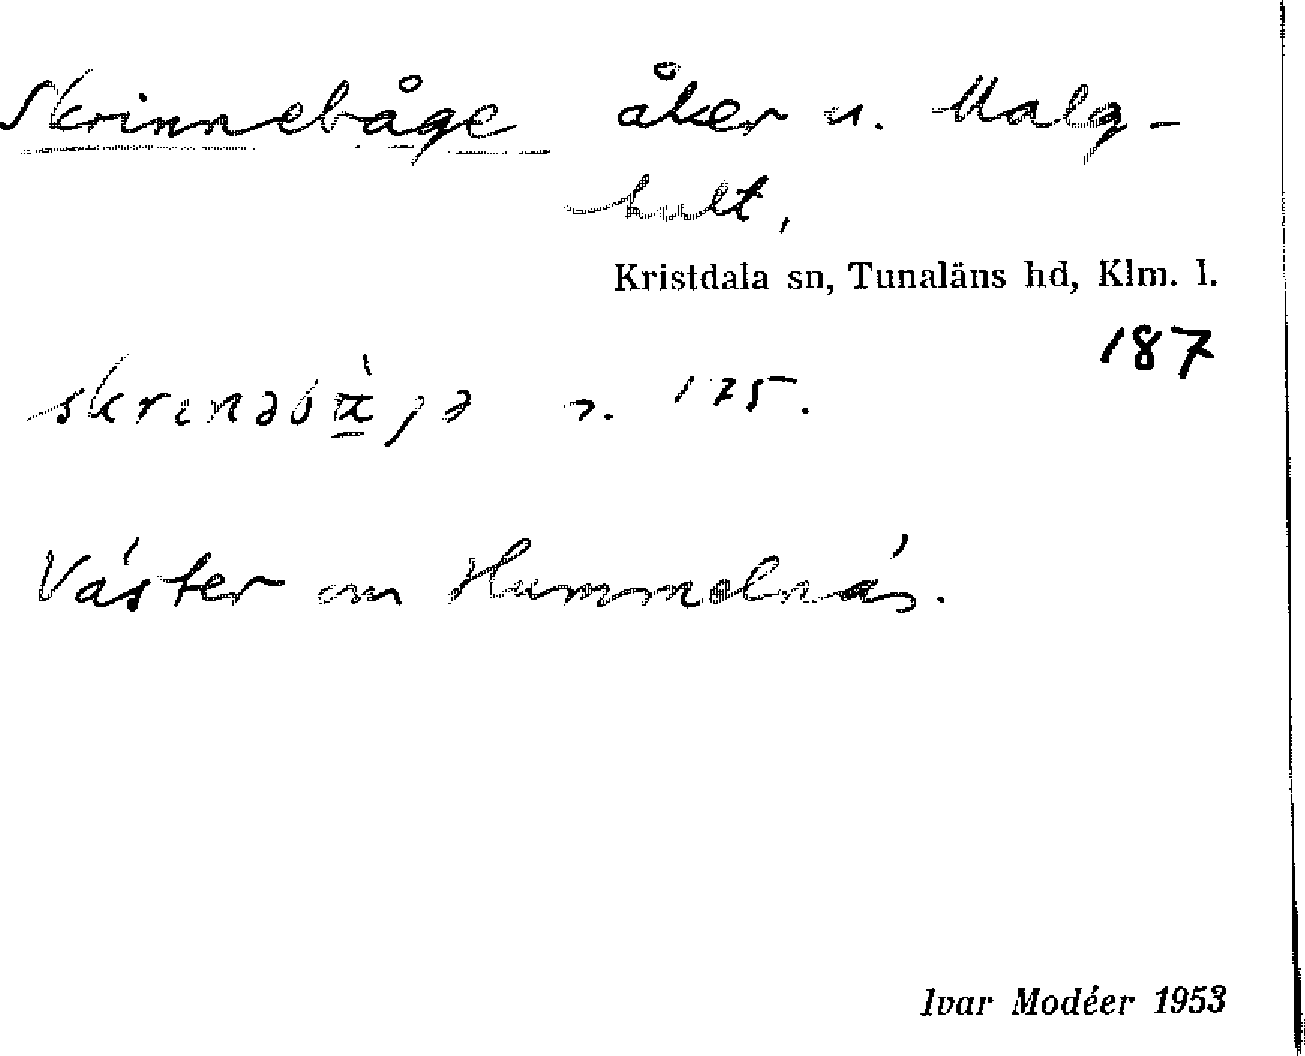 Skrinnebåge åker u. Malg-
hult,
Kristdala sn, Tunaläns hd, Klm. l.
187
175.
Väster om Hummelnäs.
Ivar Modéer 1953